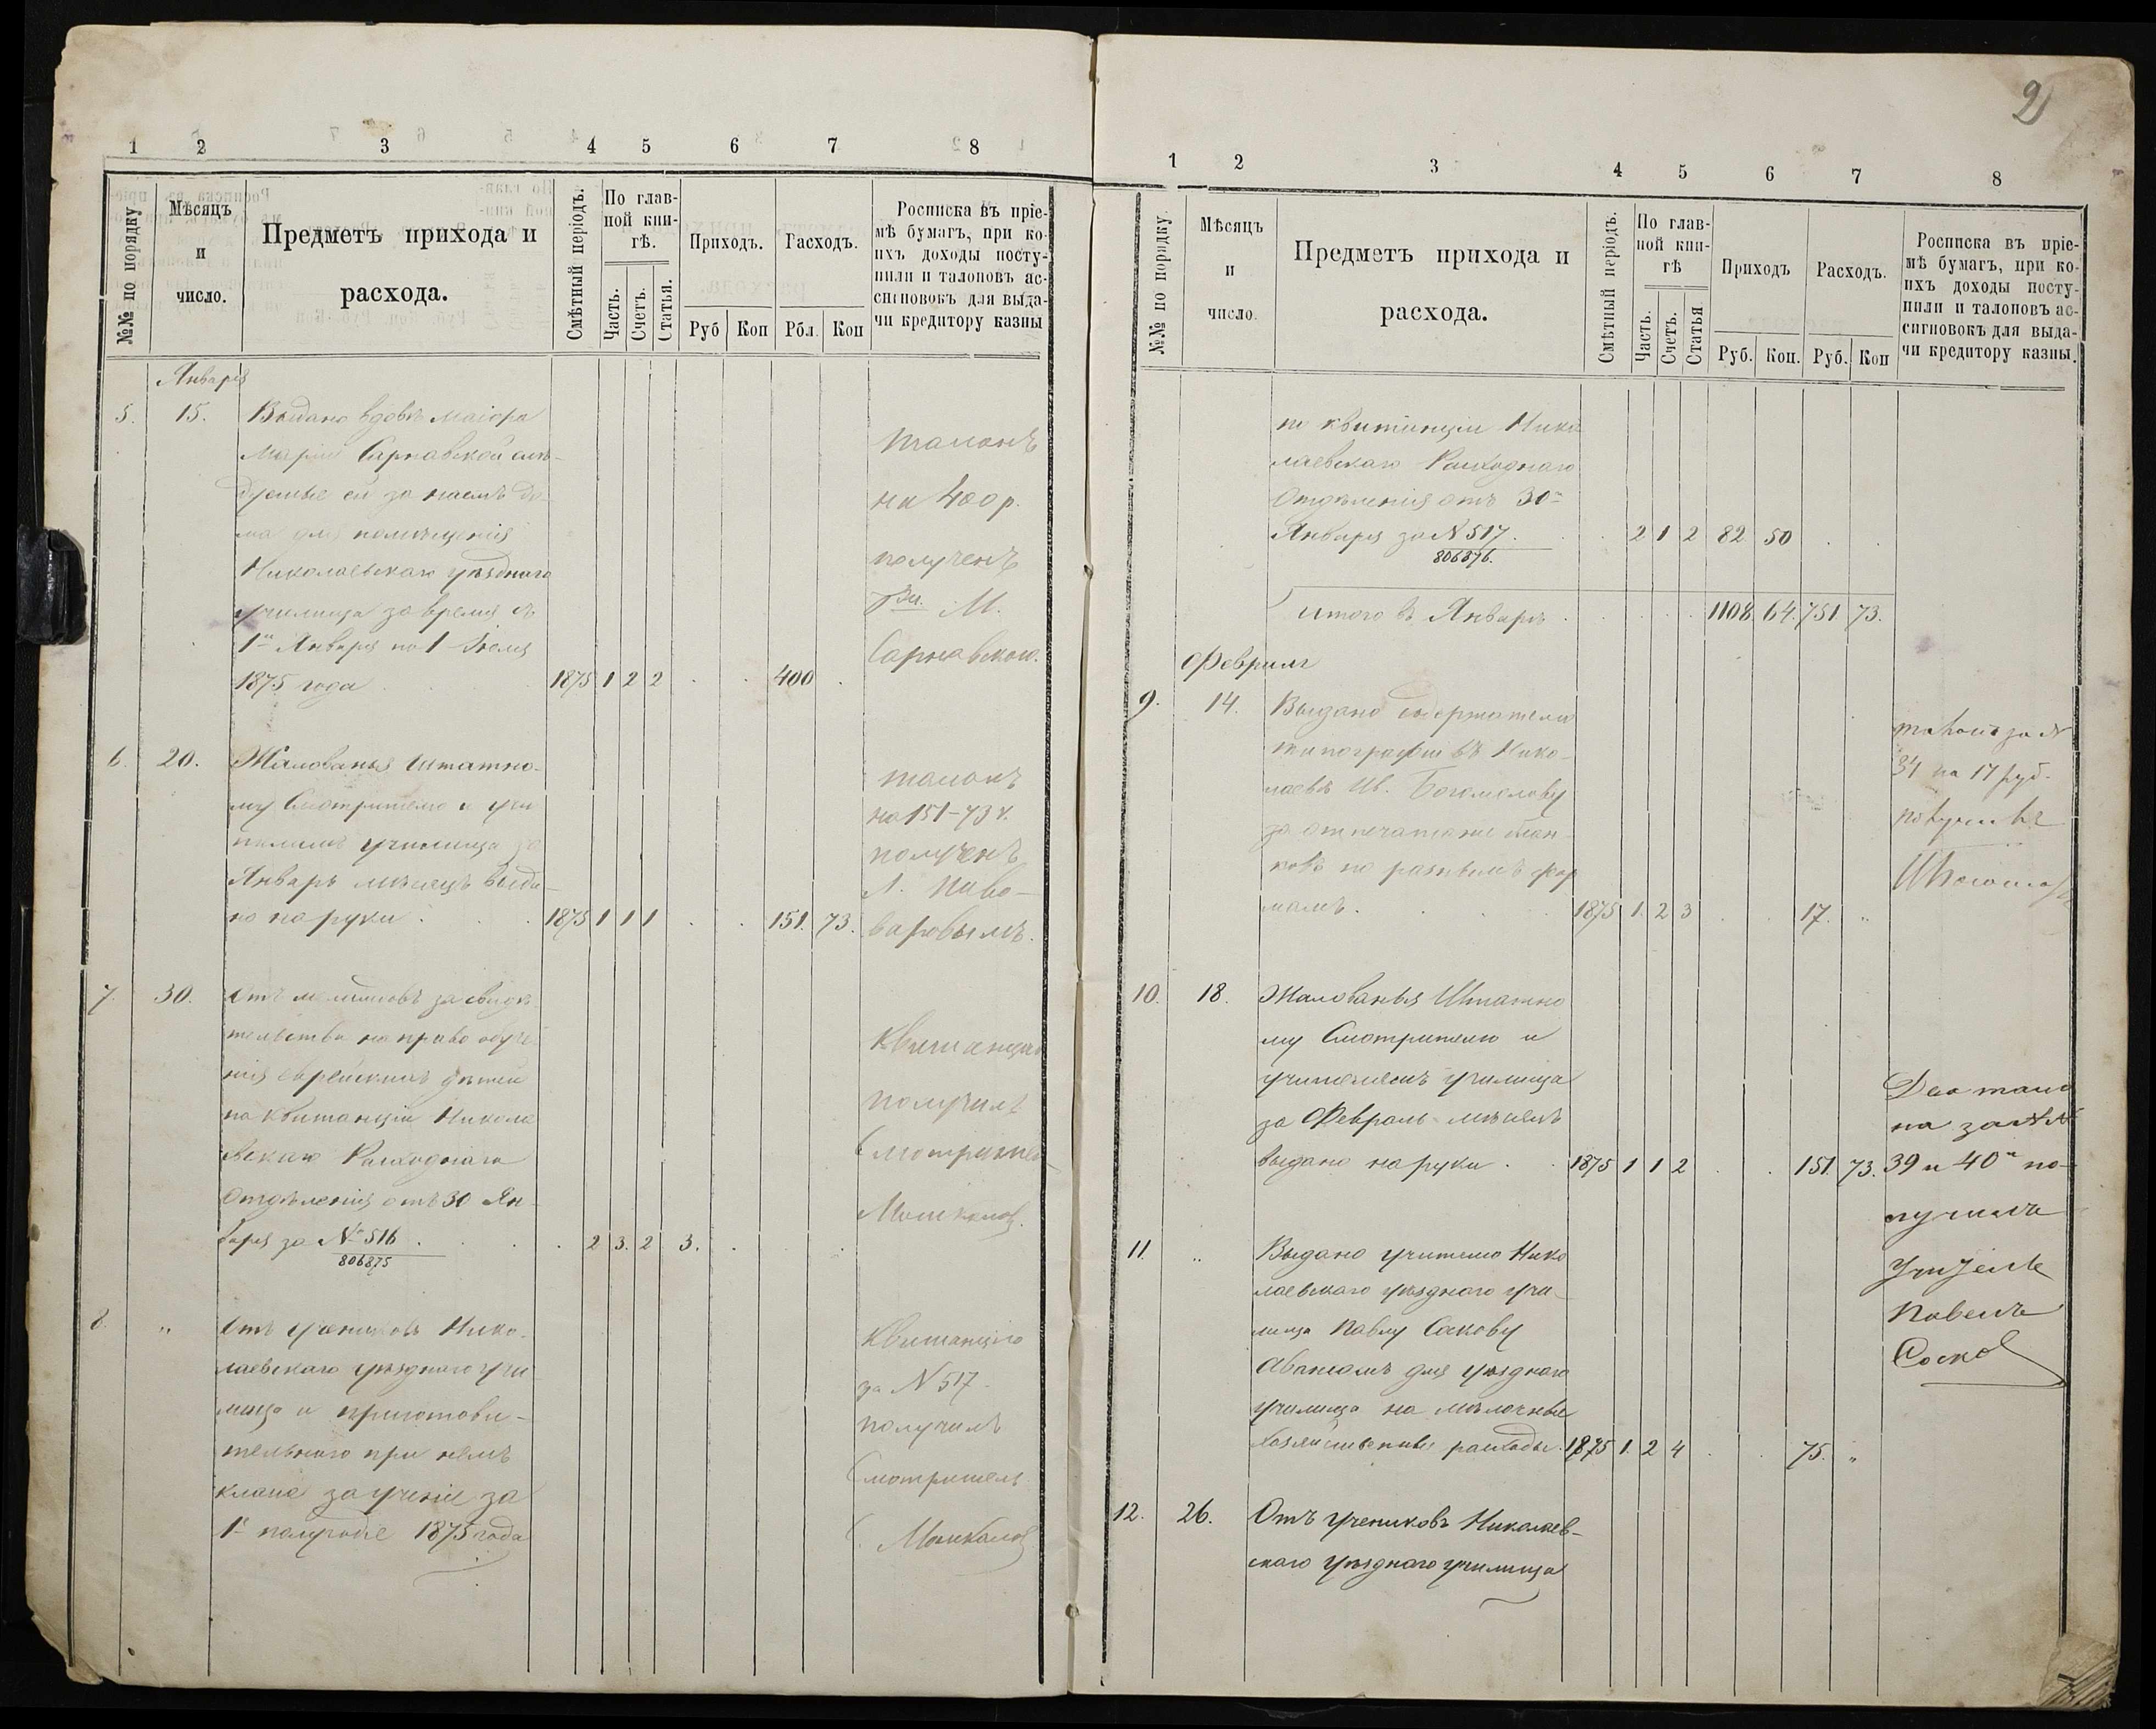 1 2 3 4 5 6 7 8
№№ по порядку
Мѣсяцъ и число.
Предметъ прихода и расхода.
Смѣтный періодъ.
По глав-
ной кни-
гѣ.
Часть.
Счетъ.
Статья.
Приходъ.
Расходъ.
Руб Коп Рбл. Коп
Росписка въ пріе-
мѣ бумагъ, при ко-
ихъ доходы посту-
пили и талоновъ ас-
сигновокъ для выда-
чи кредитору казны
Января
5. 15. Выдано вдовѣ маіора
Маріи Сарнавской слѣ-
дуемые ей за наемъ до-
ма для помѣщенія
Николаевскаго уѣзднаго
училища за время съ
1го Января по 1 Іюля
1875 года 1875 1 2 2 400
талонъ
на 400 р.
полученъ
М.
Сарнавскою.
6. 20. Жалованья Штатно-
му Смотрителю и учи
телямъ училища за
Январь мѣсяцъ выда-
но на руки 1875 1 1 1 151. 73.
талонъ
на 151-73 к.
полученъ
Л. Пиво-
варовымъ.
7. 30. Отъ меламдовъ за свидѣ
тельства на право обуче
нія еврейскихъ дѣтей
по квитанціи Никола
евскаго Расходнаго
Отдѣленія отъ 30 Ян-
варя за № 516 2 3. 2 3.
806875
Квитанцію
получилъ
Смотритель
8. „ Отъ учениковъ Нико-
лаевскаго уѣзднаго учи
лища и приготови-
тельнаго при немъ
класа за ученіе за
1е полугодіе 1875 года
Квитанцію
за № 517
получилъ
Смотритель
2
1 2 3 4 5 6 7 8
№№ по порядку.
Мѣсяцъ и число.
Предметъ прихода и расхода.
Смѣтный періодъ.
По глав-
ной кни-
гѣ
Часть.
Счетъ.
Статья
Приходъ
Расходъ.
Руб. Коп. Руб. Коп
Росписка въ пріе-
мѣ бумагъ, при ко-
ихъ доходы посту-
пили и талоновъ ас-
сигновокъ для выда-
чи кредитору казны.
по квитанціи Нико
лаевскаго Расходнаго
Отдѣленія отъ 30го
Января за № 517. 2 1 2 82 50
806876.
Итого въ Январѣ 1108. 64. 751 73.
Февраля
9. 14. Выдано содержателю
типографіи въ Нико-
лаевѣ Ив. Богомолову
за отпечатаніе блан-
ковъ по разнымъ фор
мамъ. 1875 1. 2 3 17. „
талонъ за №
34 на 17 руб.
получилъ
10. 18. Жалованья Штатно
му Смотрителю и
учителямъ училища
за Февраль мѣсяцъ
выдано на руки 1875 1 1 2 151. 73.
11. „ Выдано учителю Нико
лаевскаго уѣзднаго учи-
лища Павлу Сокову
авансомъ для уѣзднаго
училища на мѣлочные
хозяйственные расходы. 1875 1. 2 4 75. „
Два тало
на за №№
39 и 40й по-
лучилъ
Учитель
Павелъ
Соковъ
12. 26. Отъ учениковъ Николаев-
скаго уѣзднаго училища